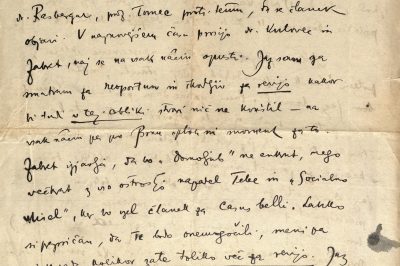 dr. Rosberger, prof. Tomec proti temu, da se članek
objavi. V najnovejšem času prosijo dr. Kulovec in
Jabret, naj se na vsak način opusti. Jaz sam ga
smatram za neoportun in škodljiv za revijo kakor
bi tudi v tej obliki stvari nič ne koristil – na
vsak način pa po Bran oploh ni moment za to.
Jabret izjavlja, da bo "Domoljub" ne enkrat, nego
večkrat z vso ostrostjo napadel Tebe in "Socialno
misel", ker bo vzel članek za casus belli. Lahko
si prepričan, da Te bodo onemogočili, meni pa
kolikor zate toliko več za revijo. Jaz